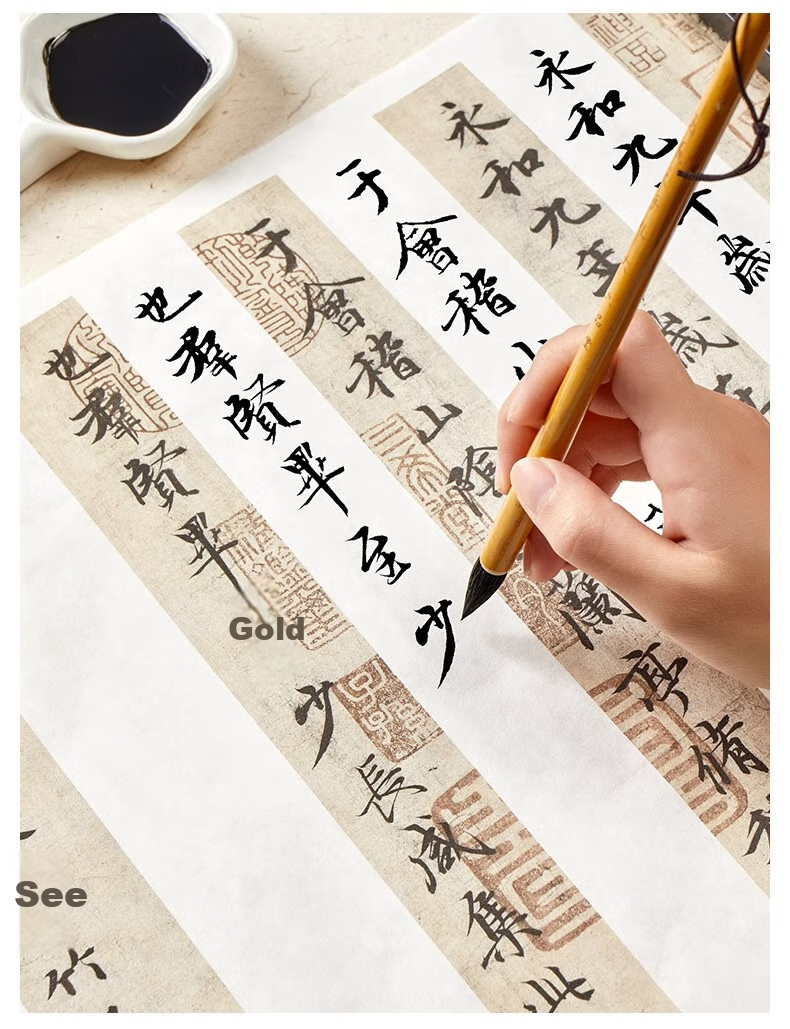 永和九歲
永和九年歲在
于會稽
于會稽山陰蘭亭脩
也羣賢畢至少
也羣賢畢
Gold
少長咸集此
See
竹